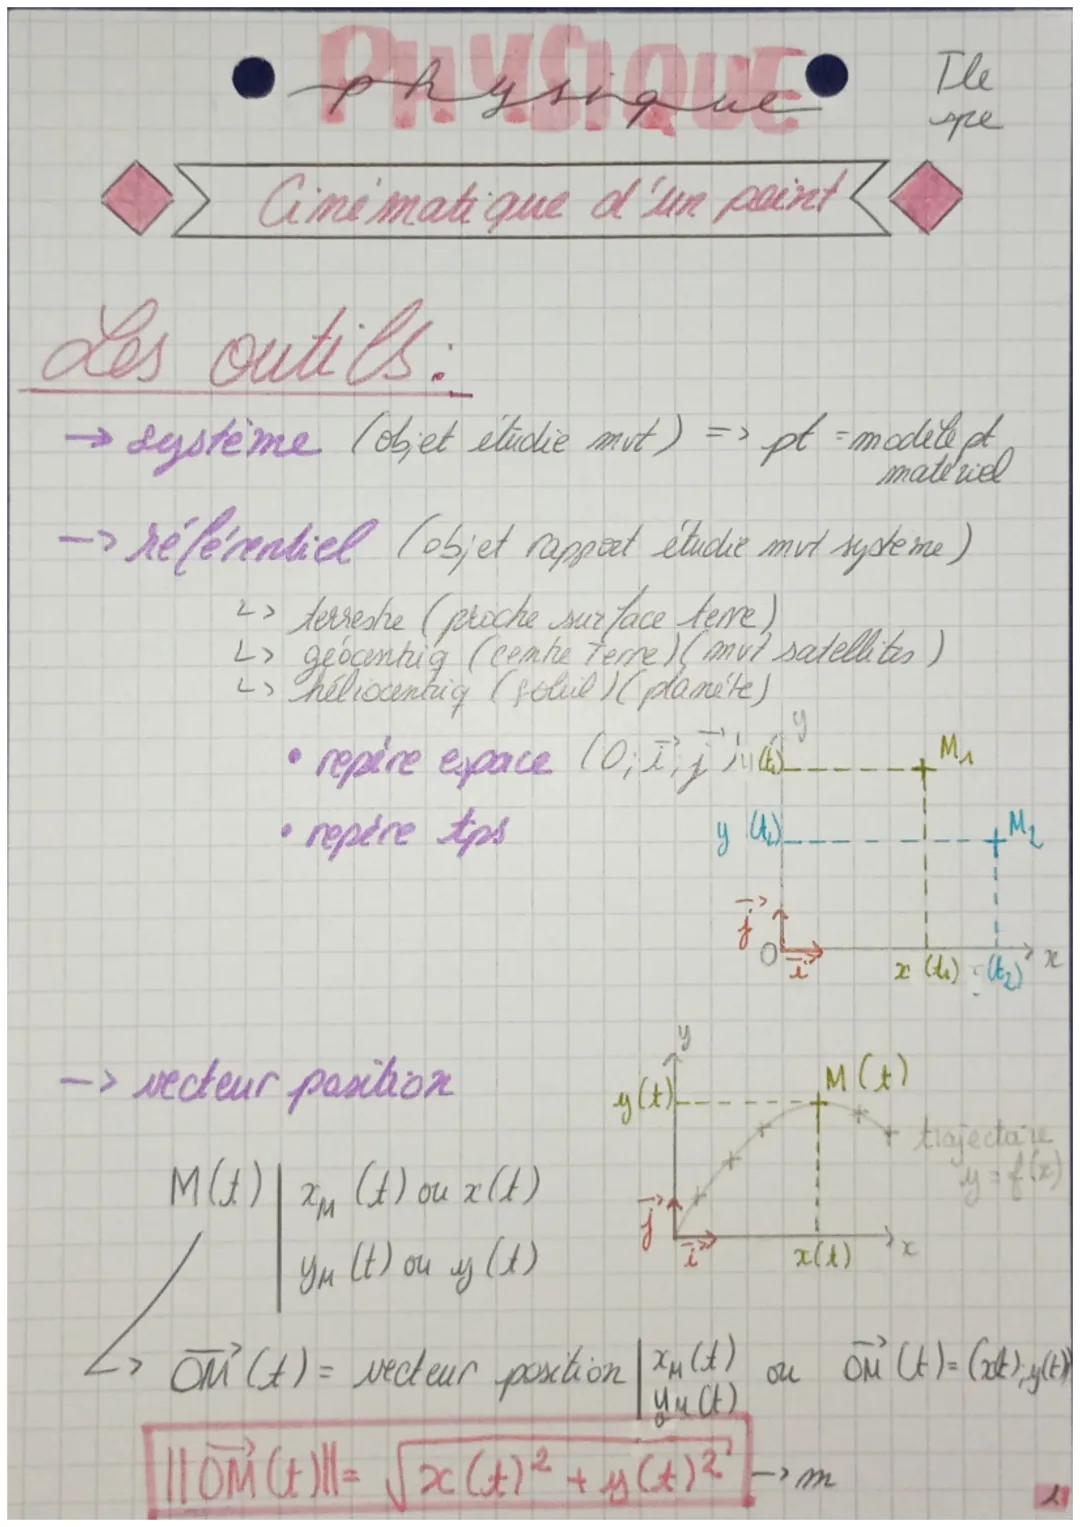 PHYSIQUE
physique
Tle
spe
Cinématique d'un point
Les outils:
→ système (objet étudie mvt) => pt = modèle pt
matériel
-> référentiel (objet rapport étudie mvt système)
↳ terrestre (proche surface terre)
↳ géocentriq (centre Terre) (mvt satellites)
↳ héliocentriq (soleil) (planète)
• repère espace (O; i, j)
• repère tps
y
y(t₁)
M₁
y (t₂)
M₂
j
O
i
x (t₁)
(t₂)
x
-> vecteur position
y
y(t)
M(t)
trajectoire
y = f(x)
j
i
x(t)
x
M(t) | x_M (t) ou x(t)
y_M (t) ou y (t)
↳ OM (t) = vecteur position | x_M(t) ou OM (t) = (x(t); y(t))
y_M(t)
||OM(t)|| = √x(t)² + y(t)² -> m
1